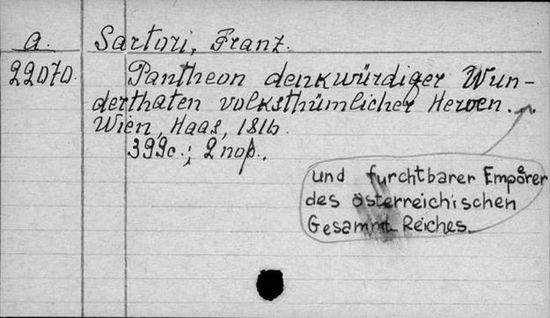 a.
22070.
Sartori, Franz.
Pantheon denkwürdiger Wun-
derthaten volksthümlicher Heroen.
Wien, Haas, 1816.
399c.; 2 пор..
und furchtbarer Empörer
des österreichischen
Gesammt Reiches.